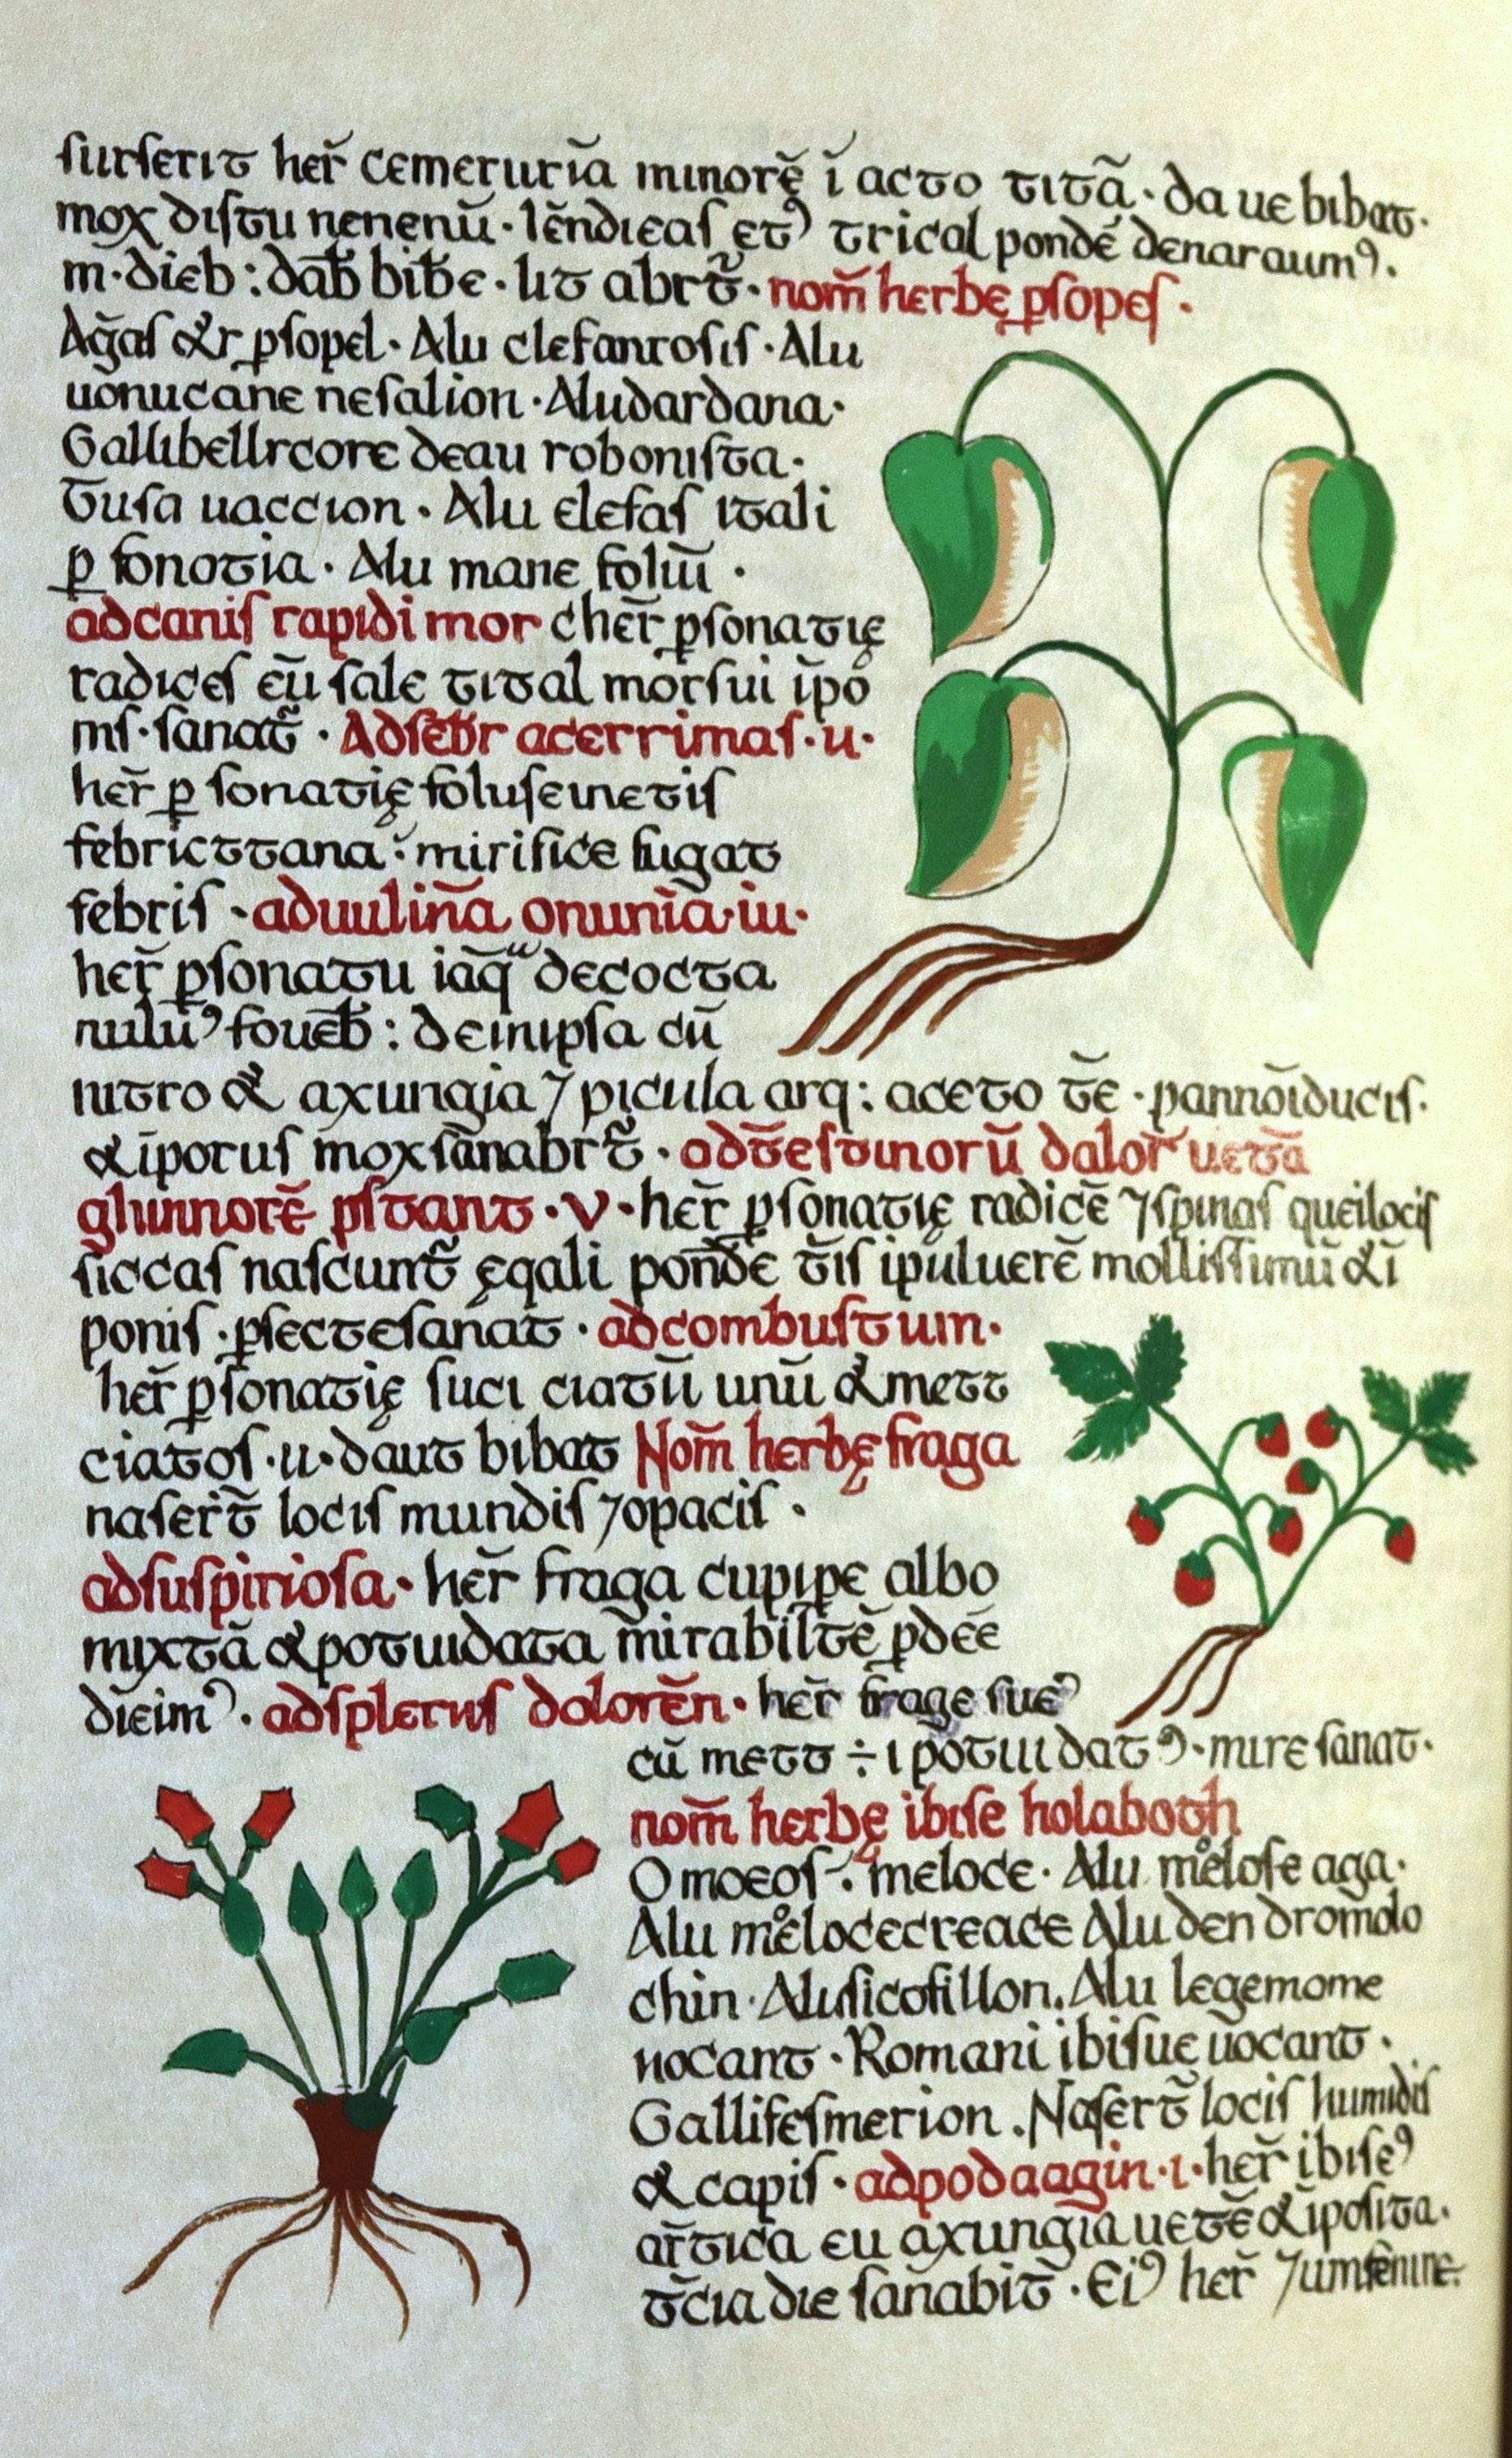 surserit her̄ cemeruria̅ minorę̄ ī acto titā · da ue bibat ·
mox distu nenenū · lēndieas et⁹ trical pondē denaraum⁹ ·
m · dieb : dab̄ bibe · lit abrt̄ · nom̄ herbę ꝑsopes ·
Aḡas &r ꝑsopel · Alu clefanrosis · Alu
uonucane nesalion · Aludardana ·
Gallibellrcore deau robonista ·
Tusa uaccion · Alu elefas itali
ꝑ sonotia · Alu mane foliū ·
adcanis rapidi mor cher̄ ꝑsonatię
radices eū sale tital morsui īpo
ms · sanat̄ · Adseb̄r acerrimas · u ·
her̄ ꝑ sonatię foluseinetis
febricttana : mirifice fugat
febris · aduulin̄a onunīa · iu ·
her̄ ꝑsonatu iāq decocta
nulū⁹ foueb̄ : deinipsa cū
nitro & axungia ⁊ picula arq : aceto t̄e · pannōiducis ·
&īporus mox sānabrt̄ · adt̄estinorū dalor̄ uetā
glunnorē pstant · v · her̄ ꝑsonatię radicē ⁊spinas queilocis
siccas nascunt̄ ęqali pon̄de t̄is ipuluerē mollissimū &ī
ponis · ꝑsectesanat · adcombustum ·
her̄ ꝑsonatię suci ciatū unū & mett
ciatos · u · daut bibat Nom̄ herbę fraga
naseir̄t locis mundis ⁊opacis ·
adsuspiriosa · her̄ fraga cupipe albo
mixtā & potuidata m̄irabiltē ꝑdēē
dieim⁹ · adsplerus dolorēn · her̄ frage sue⁹
cū mett ÷ i potuidat⁹ · mire sanat ·
nom̄ herbę ibise holaboth
Omoeos : meloce · Alu melose aga ·
Alu melocecreace Alu den dromolo
chin · Alusicofillon . Alu legemome
uocant · Romani ibisue uocant ·
Gallifesmerion . Nasert̄ locis humidis
& capis · adpodaagin · i · her̄ ibise⁹
ar̄tica eu axungia uetē &īposita ·
t̄cia die sanabit̄ · Ei⁹ her̄ ⁊umsēnine ·